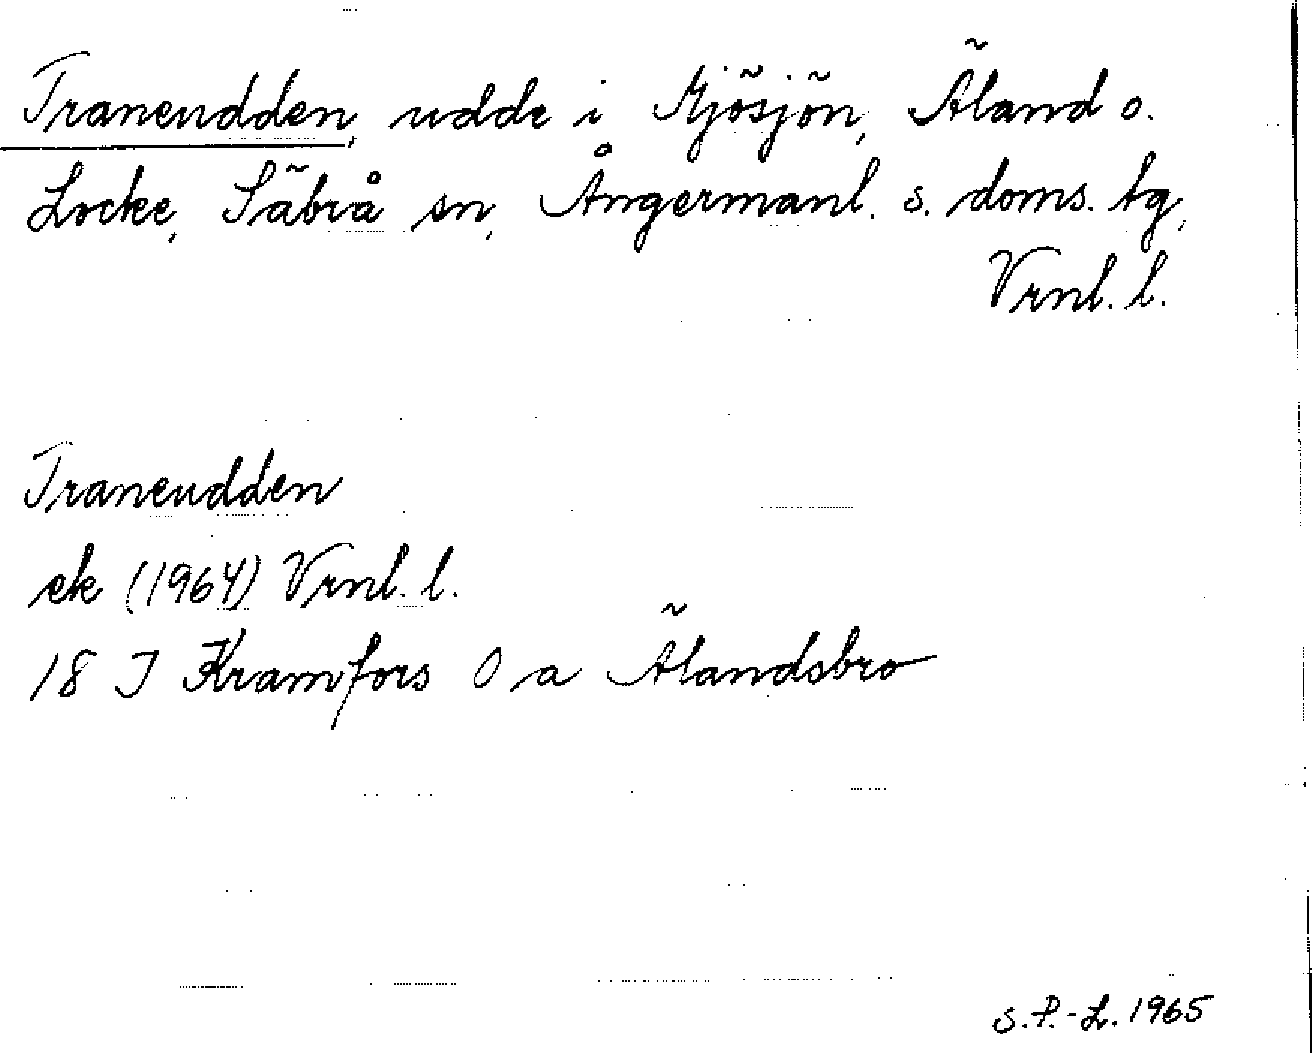 Traneudden, udde i Mjösjön, Äland o.
Locke, Säbrå sn, Ångermanl. s. doms. tg,
Vrnl. l.
Traneudden
ek (1964) Vrnl. l.
18 I Kramfors O a Älandsbro
S.P.-L. 1965